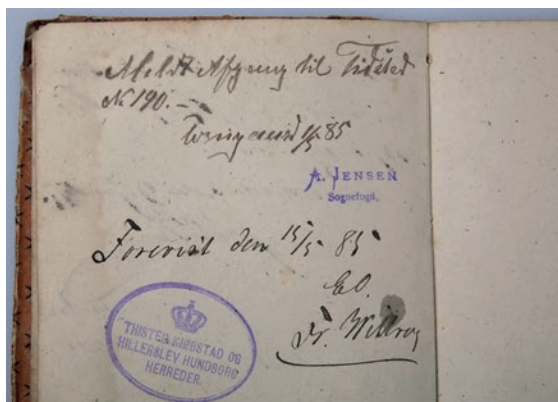 Meldt Afgang til Tilsted
No 190. —
1/5 85
A. JENSEN
Sognefoged.
Forevist den 15/5 85
E.O.
Fr.
THISTED KJØBSTAD OG
HILLERSLEV HUNDBORG
HERREDER.